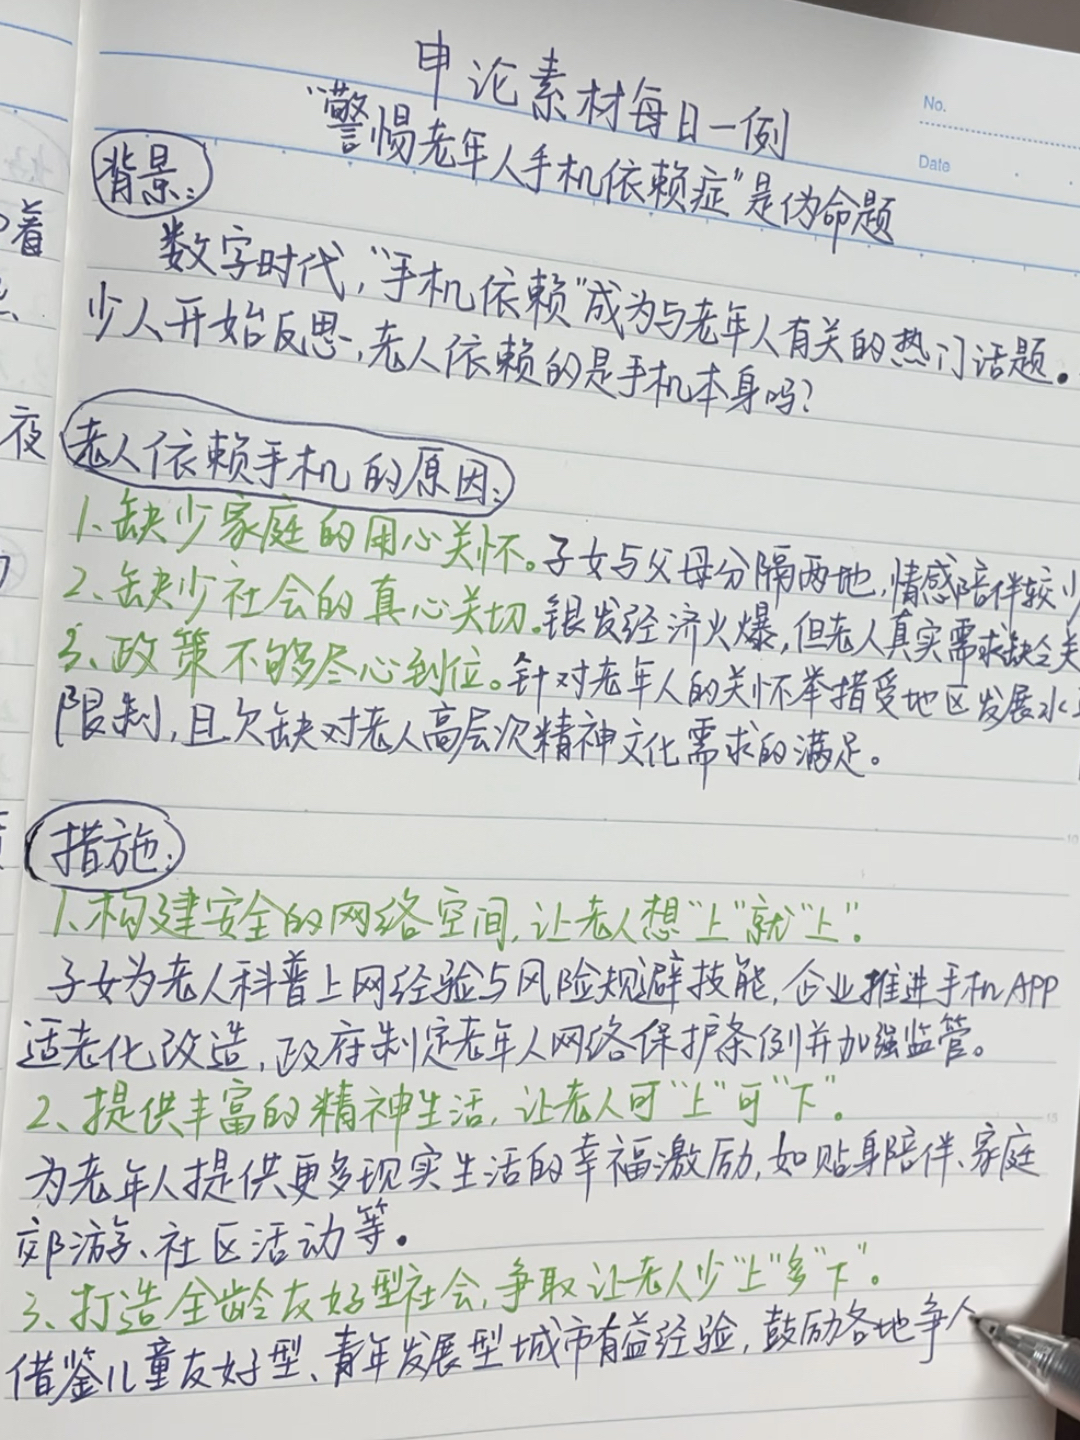 申论素材每日一例
No.
“警惕老年人手机依赖症”是伪命题
Date
背景:
数字时代,“手机依赖”成为与老年人有关的热门话题。
少人开始反思,老人依赖的是手机本身吗?
老人依赖手机的原因:
1、缺少家庭的用心关怀。子女与父母分隔两地,情感陪伴较少
2、缺少社会的真心关切.银发经济火爆,但老人真实需求缺乏关
3、政策不够尽心到位。针对老年人的关怀举措受地区发展水
限制,且欠缺对老人高层次精神文化需求的满足。
措施:
1、构建安全的网络空间,让老人想“上”就“上”.
子女为老人科普上网经验与风险规避技能,企业推进手机APP
适老化改造,政府制定老年人网络保护条例并加强监管。
2、提供丰富的精神生活,让老人可“上”可“下”.
为老年人提供更多现实生活的幸福激励,如贴身陪伴、家庭
郊游、社区活动等.
3、打造全龄友好型社会,争取让老人少“上”多“下”。
借鉴儿童友好型、青年发展型城市有益经验,鼓励各地争
着
夜
10
15